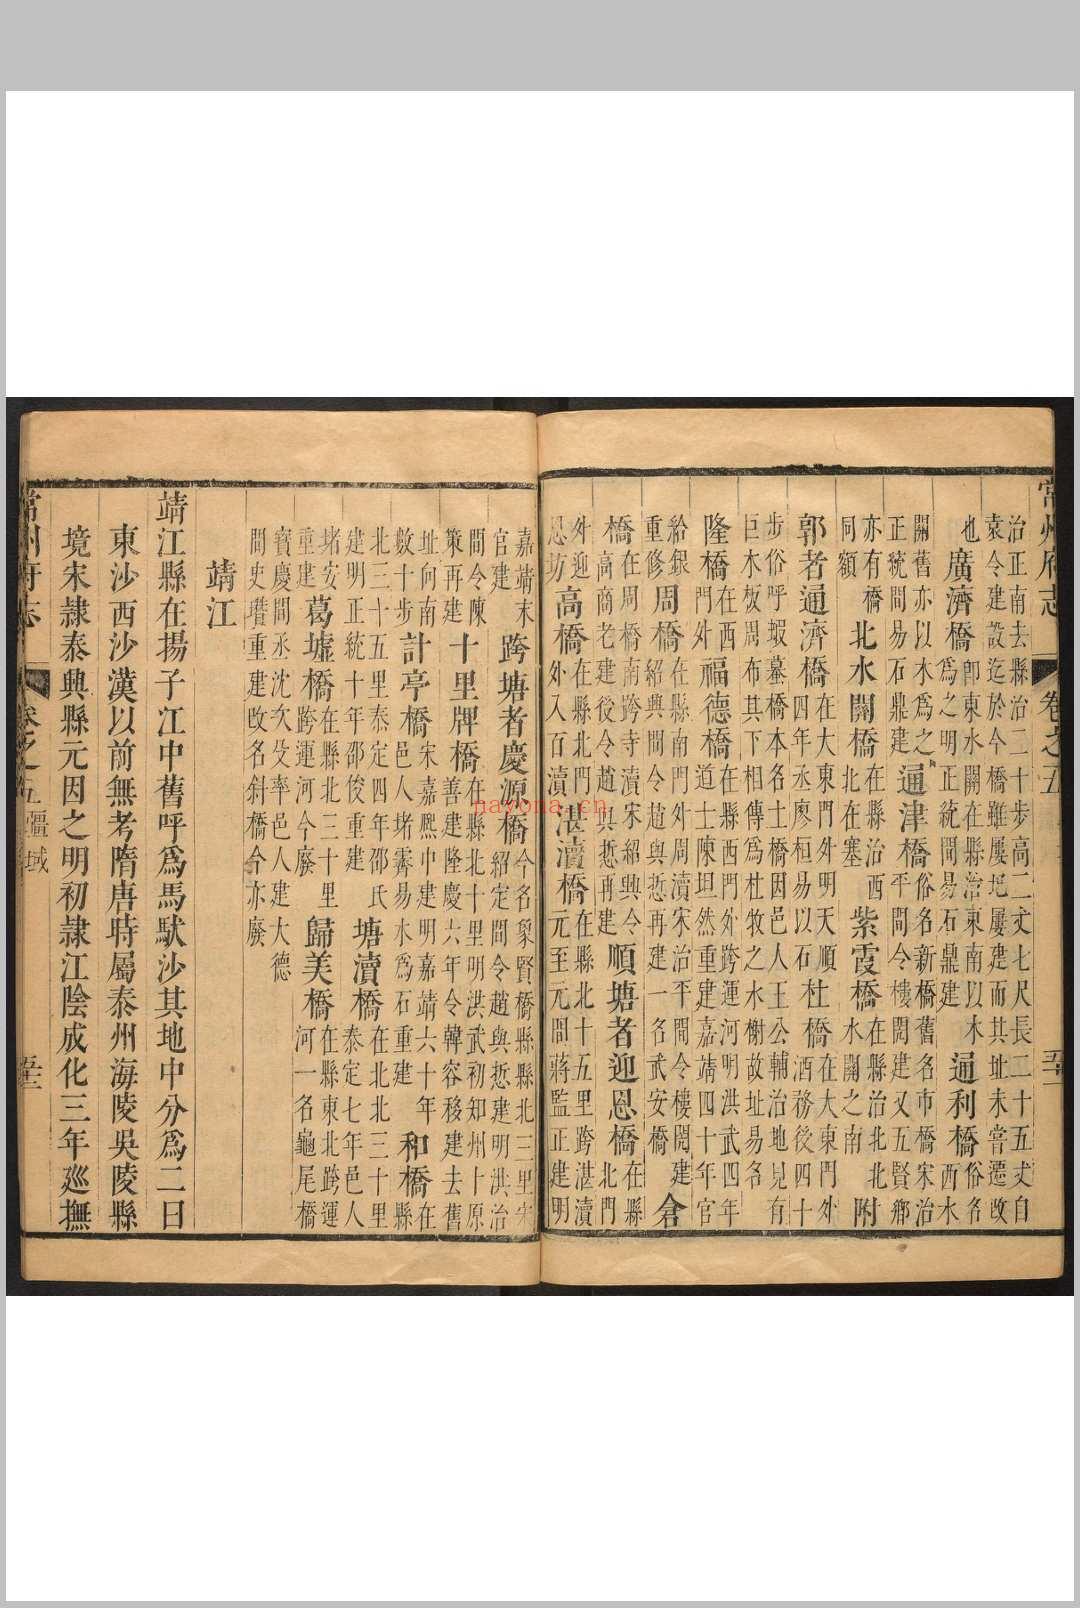 常州府志 卷之五
治正南去縣治二十步高二丈七尺長二十五丈自
袁令建設迄於今橋雖屢圮屢建而其址未嘗遷改
也 廣濟橋 卽東水關在縣治東南以木爲之明正統間易石鼎建 通利橋 俗名西水
關舊亦以木爲之正統間易石鼎建 通津橋 俗名新橋舊名市橋宋治平間令樓閌建又五賢鄉
亦有橋同額 北水關橋 在縣治西北在塞 紫霞橋 在縣治北水關之南 附
郭者通濟橋 在大東門外明天順四年丞廖桓易以石 杜橋 在大東門外酒務後四十
步俗呼蝦蟇橋本名上橋因邑人王公輔治地見有
巨木板周布其下相傳爲杜牧之水榭故址易名
隆橋 在西門外 福德橋 在縣西門外跨運河明洪武四年道士陳坦然重建嘉靖四十年官
給銀重修 周橋 在縣南門外周瀆宋治平間令樓閌建紹興間令趙與悊再建一名武安橋 倉
橋 在周橋南跨寺瀆宋紹興令高商老建後令趙與悊再建 順塘者迎恩橋 在縣北門
外迎恩坊 高橋 在縣北門外入百瀆 湛瀆橋 在縣北十五里跨湛瀆元至元間蔣監正建明
嘉靖末官建 跨塘者慶源橋 今名象賢橋縣北三里宋紹定間令趙與悊建明洪治
間令陳策再建 十里牌橋 在縣北十里明洪武初知州十原善建隆慶六年令韓容移建去舊
址向南數十步 計亭橋 宋嘉熙中建明嘉靖六十年邑人堵霽易水爲石重建 和橋 在縣
北三十五里泰定四年邵氏建明正統十年邵俊重建 塘瀆橋 在北北三十里泰定七年邑人
堵安重建 葛墟橋 在縣北三十里跨運河今廢 歸美橋 在縣東北跨運河一名龜尾橋
寶慶間丞沈次叟率邑人建大德
間史㻞重建改名斜橋今亦廢
靖江
靖江縣在揚子江中舊呼爲馬馱沙其地中分爲二曰
東沙西沙漢以前無考隋唐時屬泰州海陵吳陵縣
境宋隸泰興縣元因之明初隸江陰成化三年廵撫
常州府志 卷之五 疆域
nayona.cn